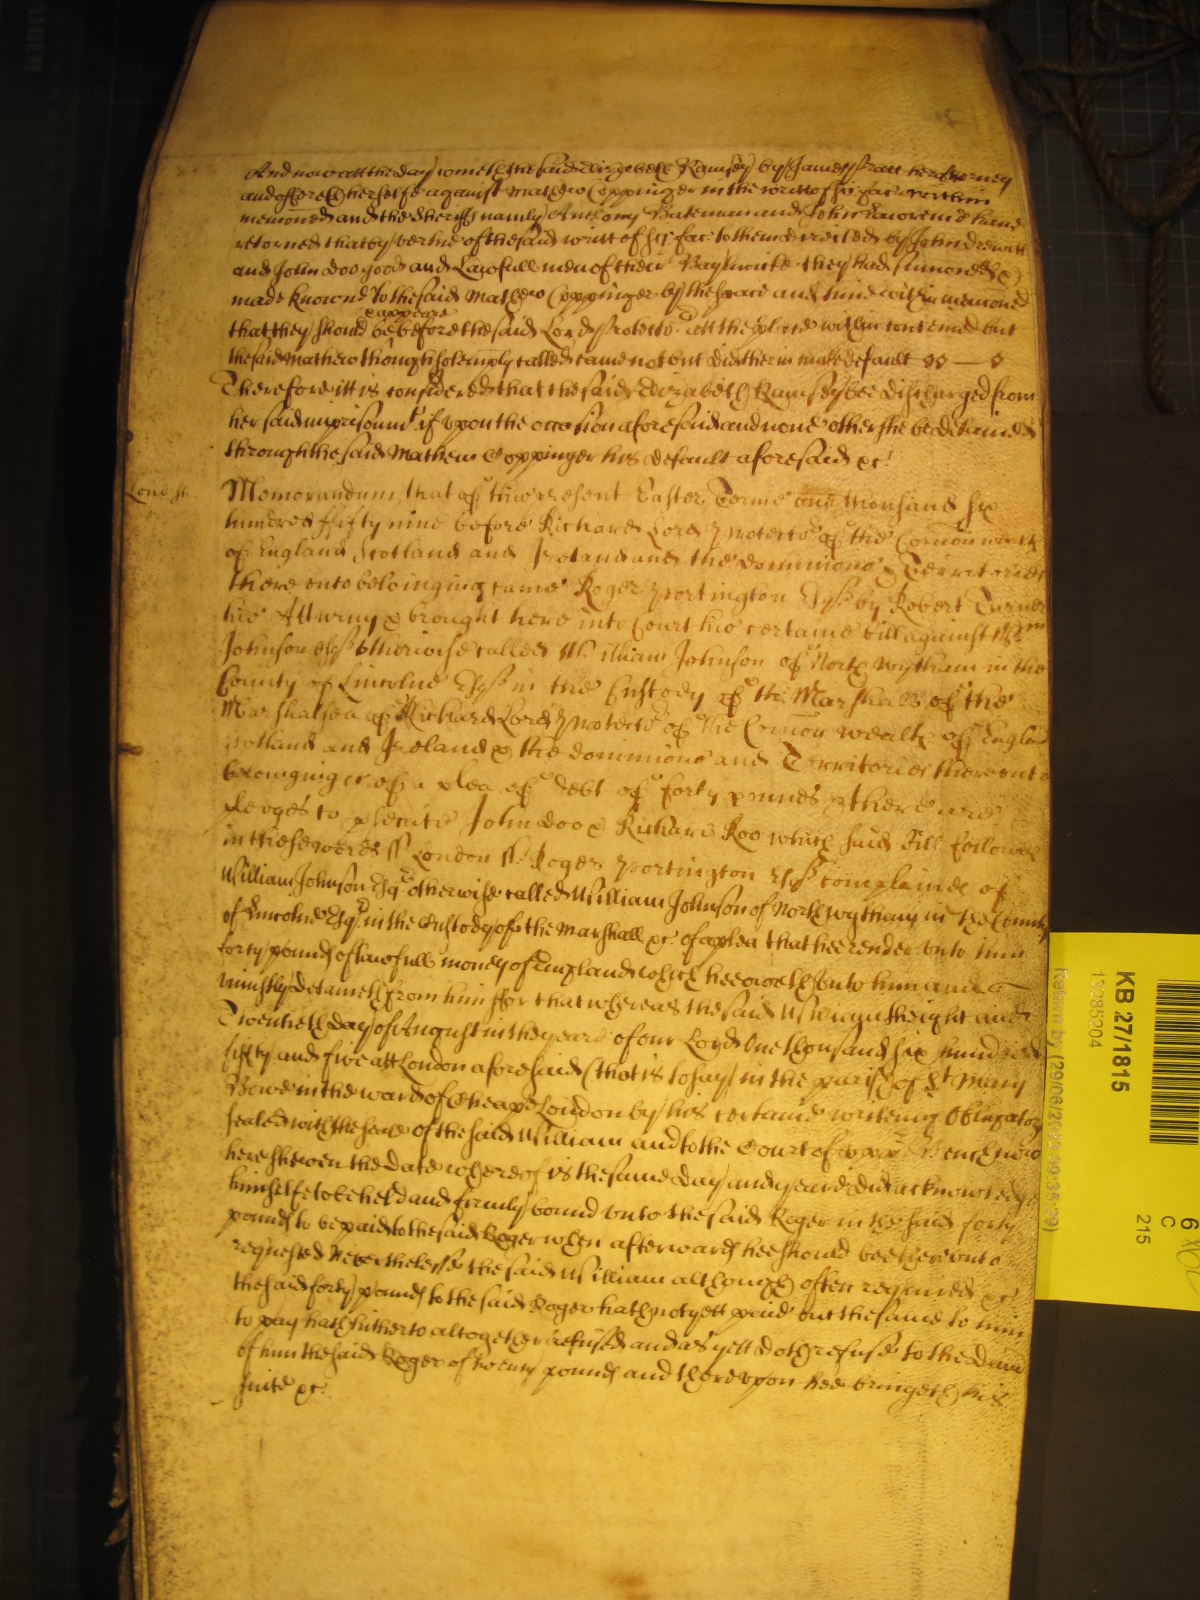 And now att the day cometh the said Elizabeth Ramsey by James Pratt her Attorney
and offereth herselfe against Mathew Coppinger in the writt of sci fac within
mencioned and the Sheriffs namely Anthony Bateman and John Lawrence have
retorned that by vertue of the said writt of sci fac to them directed by John Drewitt
and John Doo good and Lawfull men of their Bayliwicke they had sumoned &
made knowne to the said Mathew Coppinger by the space and time within mencioned
appeare
that they should be before the said Lord Protector att the place within conteined but
the said Mathew though solemply called came not but did therin make default
Therefore itt is considered that the said Elizabeth Ramsey bee discharged from
her said imprisonmt if upon the occasion aforesaid and none other she be detained
through the said Mathew Coppinger his default aforesaid &c
Lond ss
Memorandum that of this present Easter Terme one thousand six
hundred fifty nine before Richard Lord Protector of the Comon wealth
of England Scotland and Ireland and the dominions & Territories
there unto belonging came Roger Portington Esqr by Robert Turner
his Atturny & brought here into Court his certaine bill against Wm
Johnson Esqr otherwise called William Johnson of North Wytham in the
County of Lincolne Esqr in the Custody of the Marshall of the
Marshalsea of Richard Lord Protector of the Comon wealth of England
Scotland and Ireland & the dominions and Territories thereunto
belonging &c of a plea of debt of forty pounds & there are
pledges to prosecute John Doo & Richard Roo which said Bill followes
in these words ss London ss Roger Portington Esqr complaines of
William Johnson Esqr otherwise called William Johnson of North Wytham in the County
of Lincolne Esqr in the Custody of the Marshall &c of a plea that hee render unto him
forty pounds of lawfull money of England which hee oweth unto him and
uniustly detaineth from him for that whereas the said William the eight and
Twentieth day of August in the yeare of our Lord One thousand six hundred
fifty and five att London aforesaid (that is to say) in the parish of St Mary
Bowe in the ward of Cheape London by his certaine writeing Obligatory
sealed with the seale of the said William and to the Court of upper Bench now
here shewen the date whereof is the same day and yeare did acknowledge
himselfe to be held and firmly bound unto the said Roger in the said forty
pounds to be paid to the said Roger when afterwards hee should bee thereunto
requested Neverthelesse the said William although often required &c
the said forty pounds to the said Roger hath not yett paid but the same to him
to pay hath hitherto altogether refused and as yett doth refuse to the Dam
of him the said Roger of twenty pounds and thereupon hee bringeth his
suite &c
KB 27/1815
Return by (29/06/
C
215